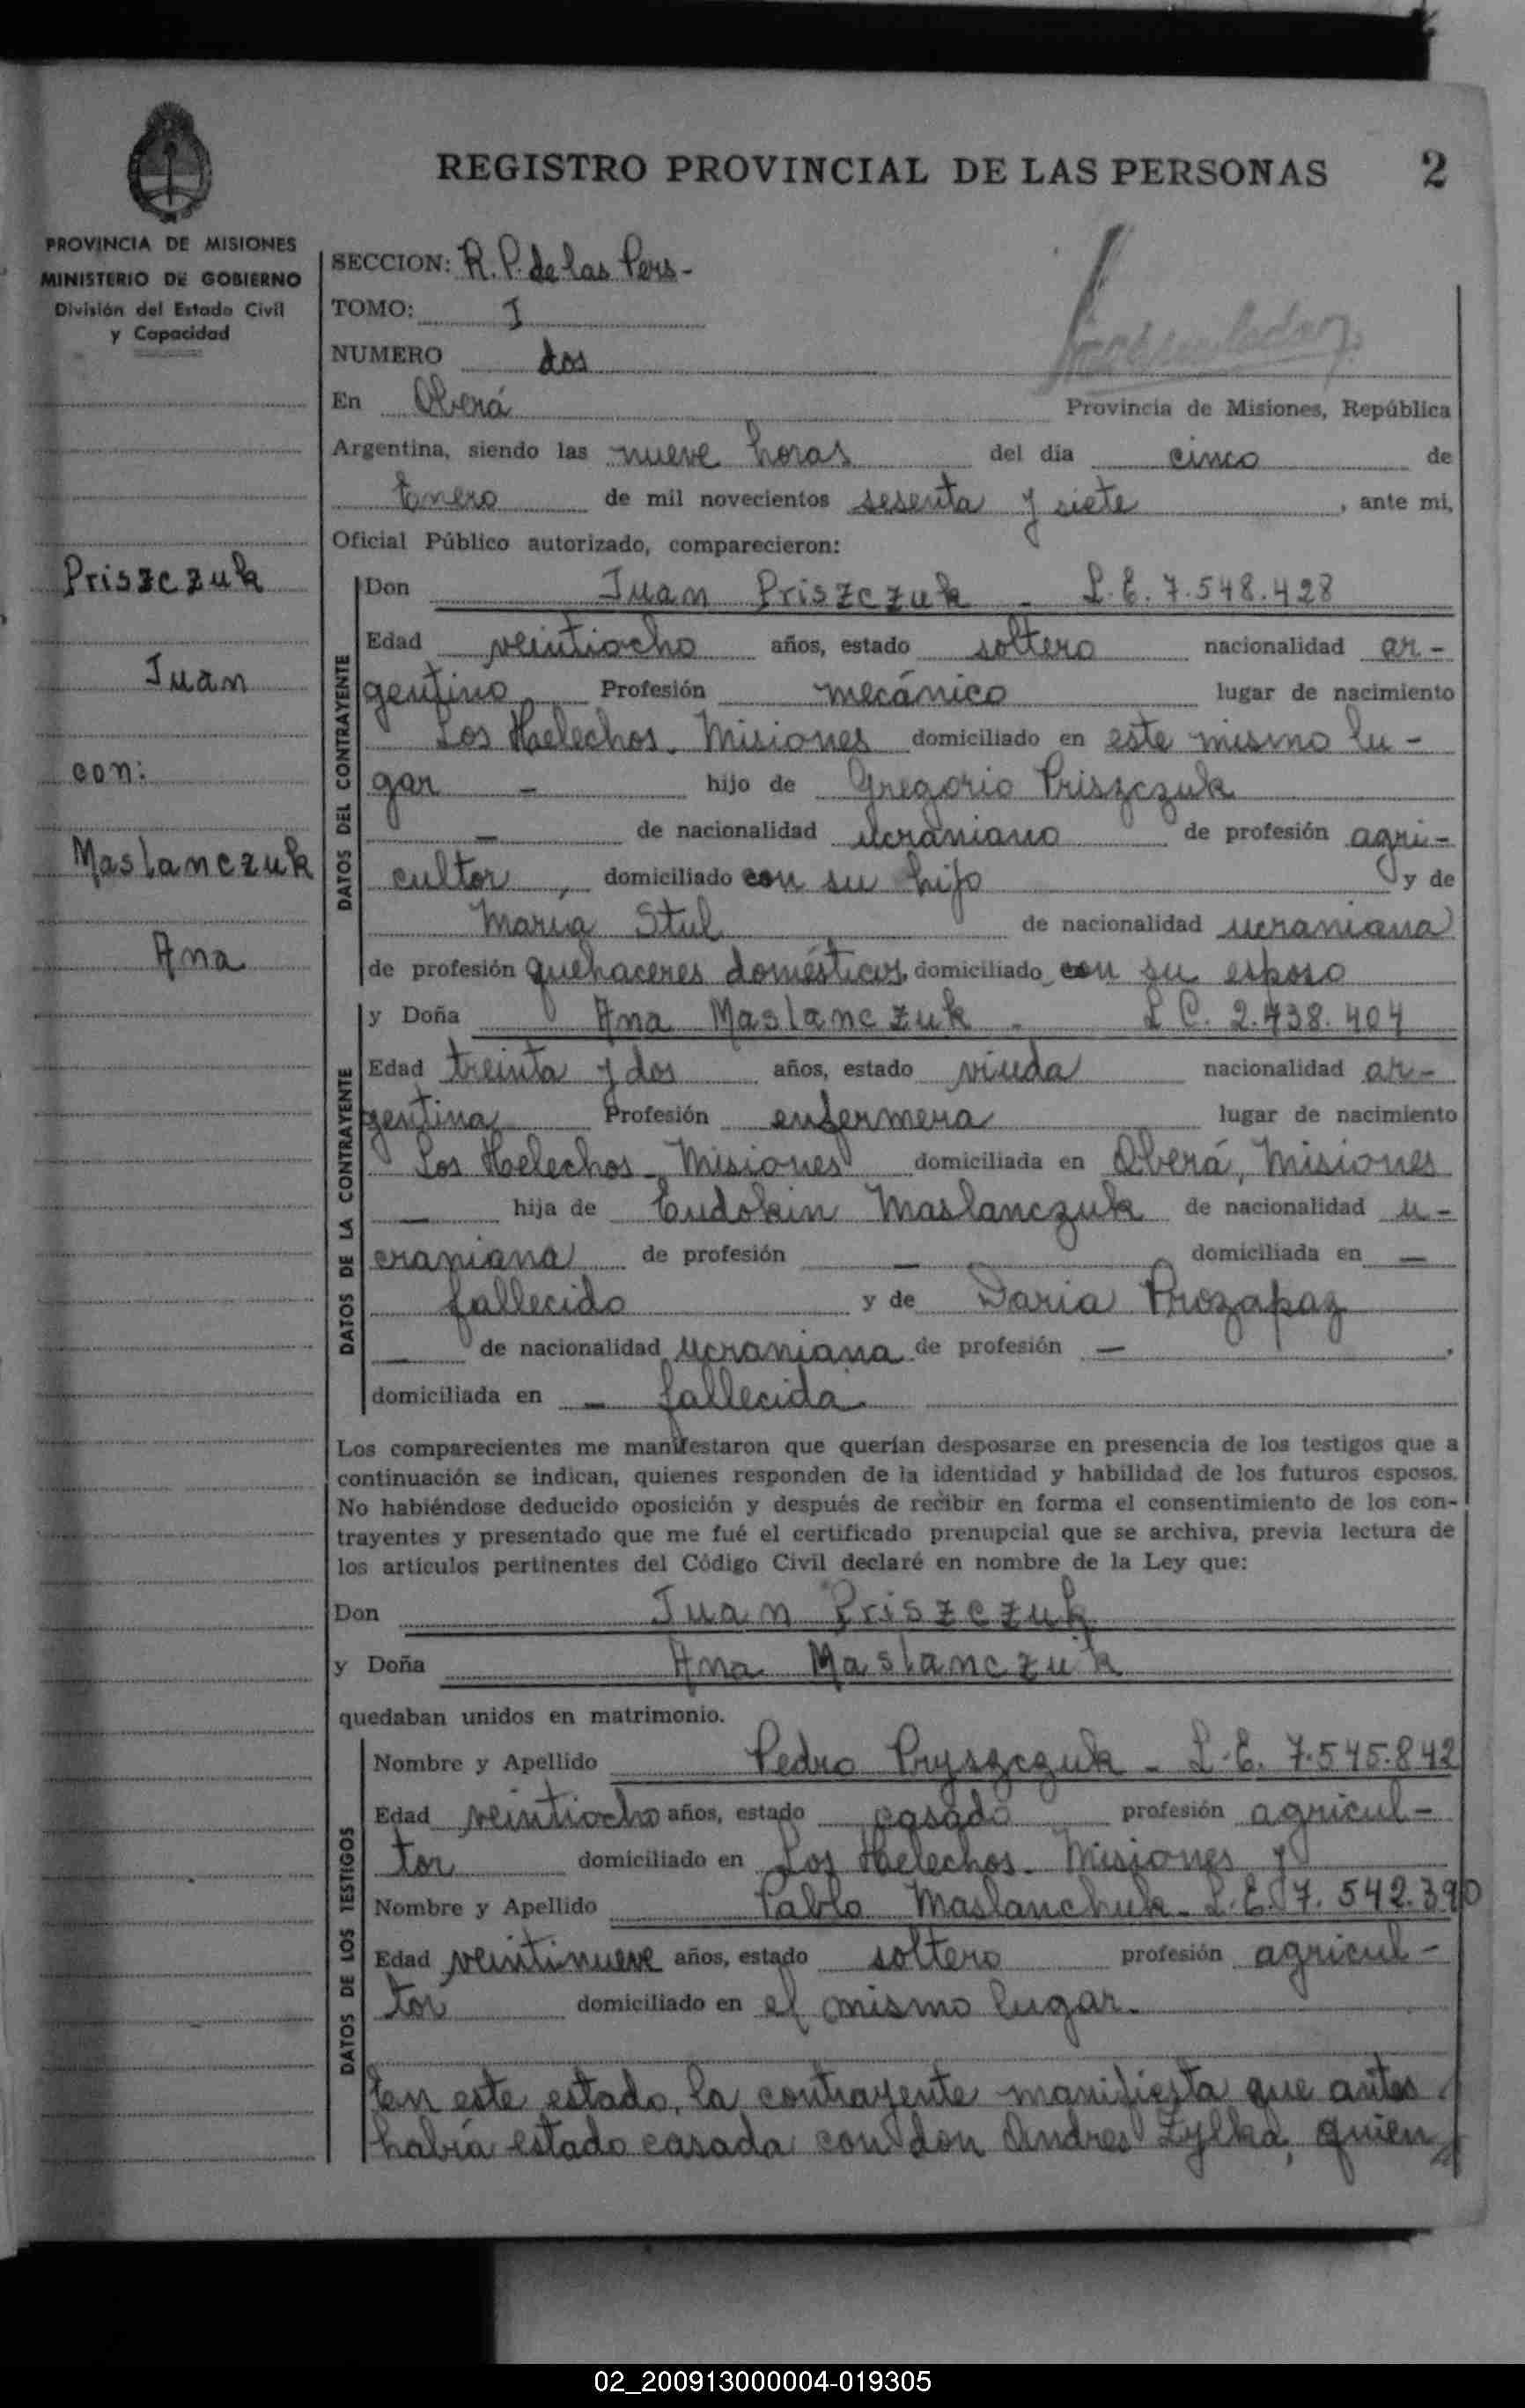 REGISTRO PROVINCIAL DE LAS PERSONAS 2
PROVINCIA DE MISIONES
MINISTERIO DE GOBIERNO
División del Estado Civil
y Capacidad
Priszczuk
Juan
con:
Maslanczuk
Ana
SECCION: R. P. de las Pers-
TOMO: I
NUMERO dos
En Oberá Provincia de Misiones, República
Argentina, siendo las nueve horas del día cinco de
Enero de mil novecientos sesenta y siete, ante mi,
Oficial Público autorizado, comparecieron:
DATOS DEL CONTRAYENTE
Don Juan Priszczuk - L.E. 7.548.428
Edad veintiocho años, estado soltero nacionalidad ar-
gentino Profesión mecánico lugar de nacimiento
Los Helechos - Misiones domiciliado en este mismo lu-
gar - hijo de Gregorio Priszczuk
- de nacionalidad ucraniano de profesión agri-
cultor, domiciliado con su hijo y de
María Stul de nacionalidad ucraniana
de profesión quehaceres domésticos, domiciliado con su esposo
DATOS DE LA CONTRAYENTE
y Doña Ana Maslanczuk - L C. 2.438.404
Edad treinta y dos años, estado viuda nacionalidad ar-
gentina Profesión enfermera lugar de nacimiento
Los Helechos - Misiones domiciliada en Oberá, Misiones
- hija de Eudokin Maslanczuk de nacionalidad u-
craniana de profesión - domiciliada en -
fallecido y de Daria Prozapaz
- de nacionalidad ucraniana de profesión - .
domiciliada en - fallecida
Los comparecientes me manifestaron que querían desposarse en presencia de los testigos que a
continuación se indican, quienes responden de la identidad y habilidad de los futuros esposos.
No habiéndose deducido oposición y después de recibir en forma el consentimiento de los con-
trayentes y presentado que me fué el certificado prenupcial que se archiva, previa lectura de
los artículos pertinentes del Código Civil declaré en nombre de la Ley que:
Don Juan Priszczuk
y Doña Ana Maslanczuk
quedaban unidos en matrimonio.
DATOS DE LOS TESTIGOS
Nombre y Apellido Pedro Pryszczuk - L.E. 7.545.842
Edad veintiocho años, estado casado profesión agricul-
tor domiciliado en Los Helechos - Misiones y
Nombre y Apellido Pablo Maslanchuk - L.E. 7.542.390
Edad veintinueve años, estado soltero profesión agricul-
tor domiciliado en el mismo lugar.
En este estado, la contrayente manifiesta que antes
había estado casada con don Andres Zylka, quien
02_200913000004-019305